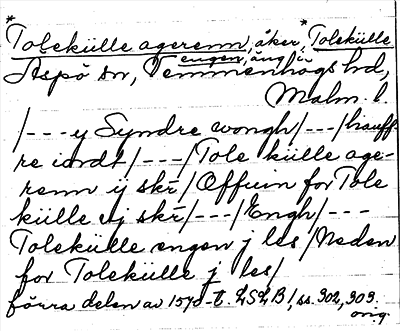 *Tolekülle agerenn, åker, *Tolekülle
engen, äng i
Aspö sn, Vemmenhögs hd,
Malm. l.
/---y Syndre wongh/---/hauff-
re iordt/---/Tole külle age-
renn ij skr/Offuin for Tole
külle vj skr/---/Engh/---
Tolekülle engen j les/Neden
for Tolekülle j les/
förra delen av 1570-t. LSLB1, ss. 302, 303.
orig.